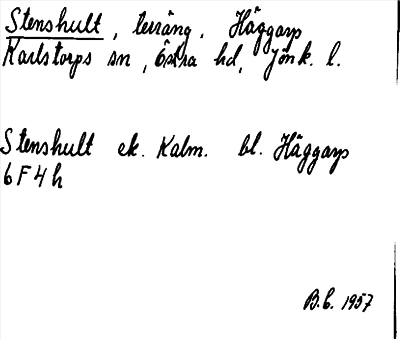 Stenshult, terräng. Häggarp
Karlstorps sn, Östra hd, Jönk. l.
Stenshult ek. Kalm. bl. Häggarp
6F4h
B.L. 1957